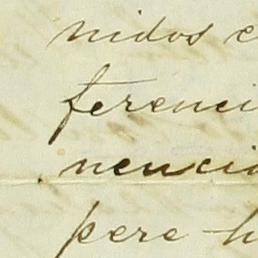 nidos c
ferenci
nencia
pere h